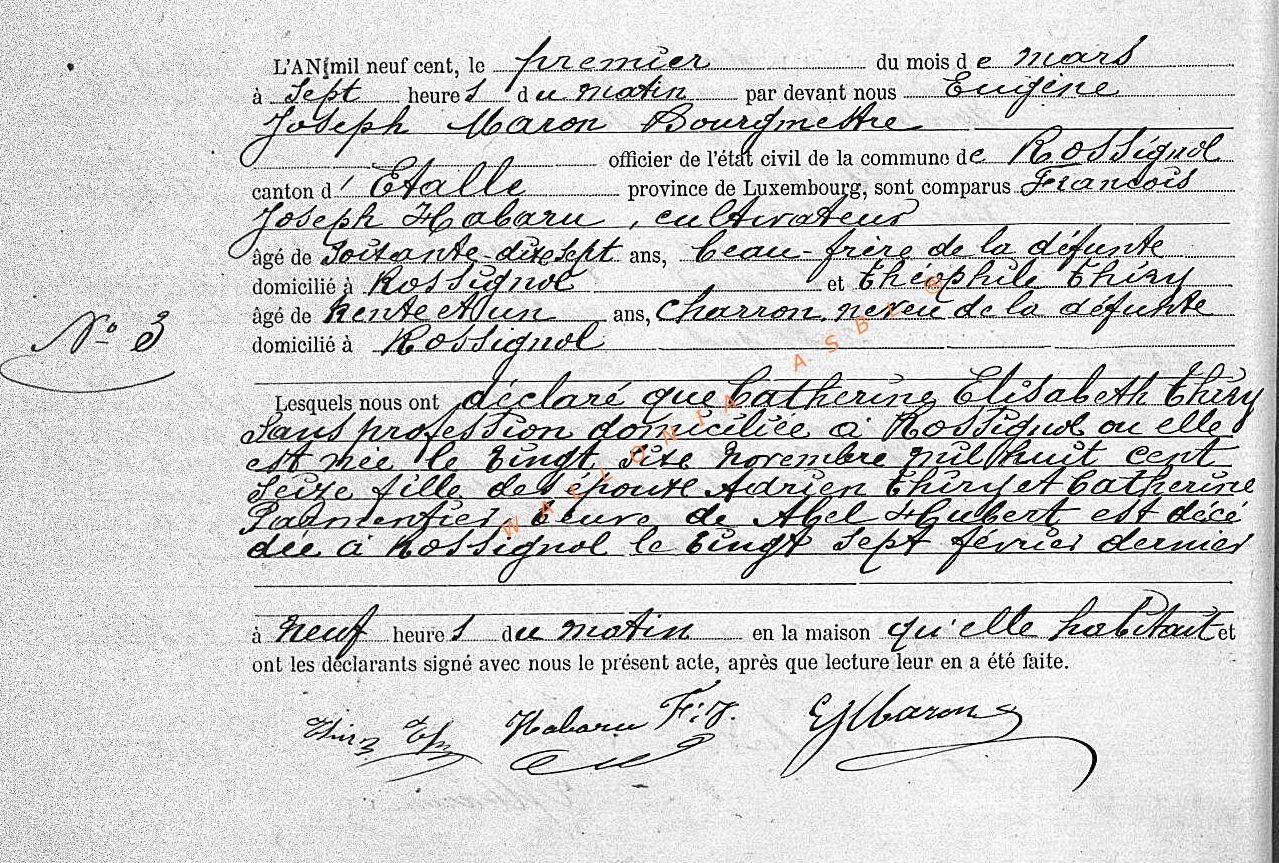 L'AN mil neuf cent, le premier du mois de mars
à sept heures du matin par devant nous Eugène
Joseph Maron Bourgmestre
officier de l'état civil de la commune de Rossignol
canton d' Etalle province de Luxembourg, sont comparus Francois
Joseph Habaru, cultivateur
âgé de soixante-dix sept ans, beau-frère de la défunte
domicilié à Rossignol et Théophile Thiry
âgé de trente et un ans, charron, neveu de la défunte
N° 3
domicilié à Rossignol
Lesquels nous ont déclaré que Catherine Elisabeth Thiry
sans profession domiciliée à Rossignol ou elle
est née le vingt six novembre mil huit cent
seize fille des époux Adrien Thiry et Catherine
Parmentier veuve de Abel Hubert est décé
dée à Rossignol le vingt sept février dernier
à neuf heures du matin en la maison qu'elle habitait et
ont les déclarants signé avec nous le présent acte, après que lecture leur en a été faite.
Thiry Th Habaru F. J. EJMaron
WALLONIA ASBL ©